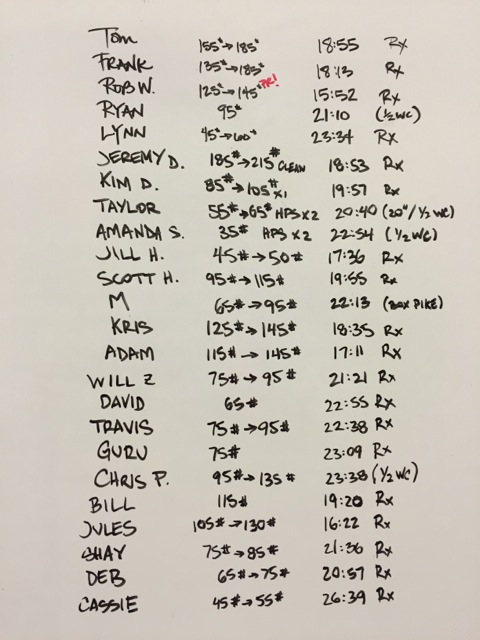 Tom 155#→185# 18:55 Rx
FRANK 135#→185# 18:13 Rx
ROB W. 125#→145# PR! 15:52 Rx
RYAN 95# 21:10 (½WC)
LYNN 45#→60# 23:34 Rx
JEREMY D. 185#→215# CLEAN 18:53 Rx
KIM D. 85#→105#x1 19:57 Rx
TAYLOR 55#→65# HPS x2 20:40 (20"/½WC)
AMANDA S. 35# HPS x2 22:54 (½WC)
JILL H. 45#→50# 17:36 Rx
SCOTT H. 95#→115# 19:55 Rx
M 65#→95# 22:13 (BOX PIKE)
KRIS 125#→145# 18:35 Rx
ADAM 115#→145# 17:11 Rx
WILL Z 75#→95# 21:21 Rx
DAVID 65# 22:55 Rx
TRAVIS 75#→95# 22:38 Rx
GURU 75# 23:09 Rx
CHRIS P. 95#→135# 23:38 (½WC)
BILL 115# 19:20 Rx
JULES 105#→130# 16:22 Rx
SHAY 75#→85# 21:36 Rx
DEB 65#→75# 20:57 Rx
CASSIE 45#→55# 26:39 Rx